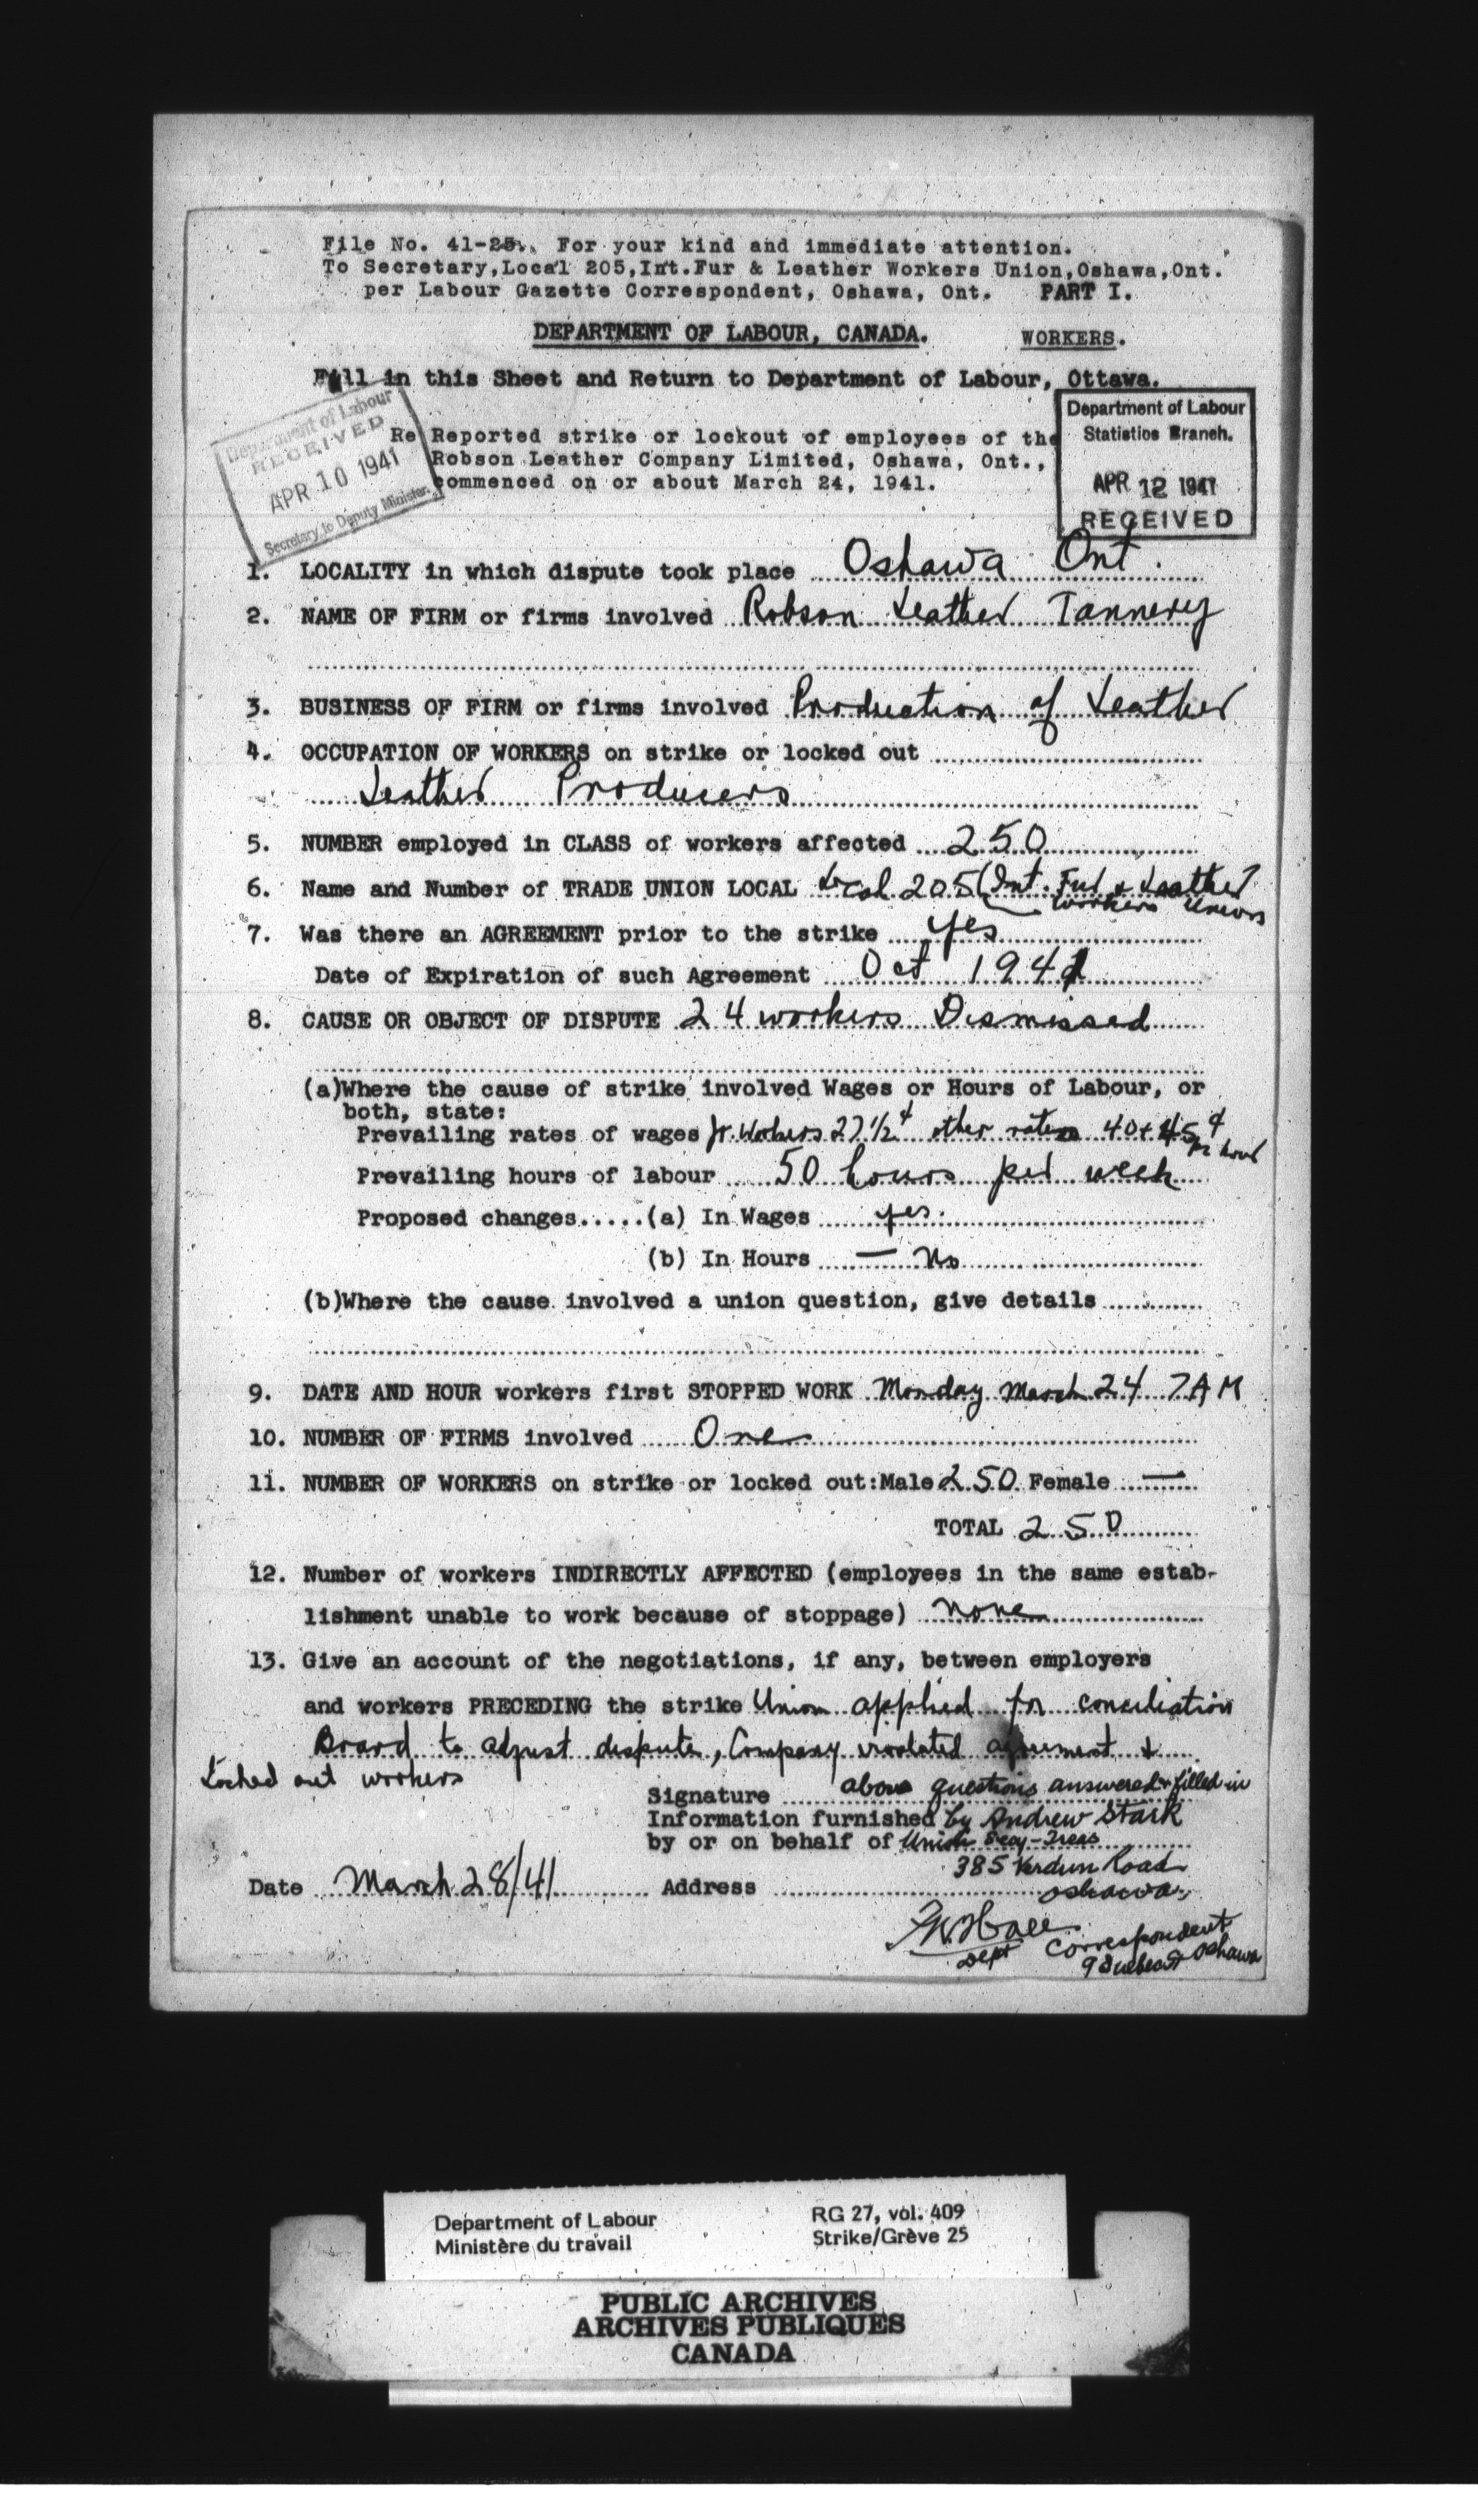 File No. 41-25.. For your kind and immediate attention.
To Secretary,Local 205,Int.Fur & Leather Workers Union,Oshawa,Ont.
per Labour Gazette Correspondent, Oshawa, Ont. PART I.
DEPARTMENT OF LABOUR, CANADA. WORKERS.
Fill in this Sheet and Return to Department of Labour, Ottawa.
Department of Labour
RECEIVED
APR 10 1941
Secretary to Deputy Minister.
Re Reported strike or lockout of employees of the
Robson Leather Company Limited, Oshawa, Ont.,
commenced on or about March 24, 1941.
Department of Labour
Statistics Branch.
APR 12 1941
RECEIVED
1. LOCALITY in which dispute took place Oshawa Ont.
2. NAME OF FIRM or firms involved Robson Leather Tannery
3. BUSINESS OF FIRM or firms involved Production of Leather
4. OCCUPATION OF WORKERS on strike or locked out
Leather Producers
5. NUMBER employed in CLASS of workers affected 250
6. Name and Number of TRADE UNION LOCAL Local 205 (Int. Fur & Leather
Workers Union
7. Was there an AGREEMENT prior to the strike yes
Date of Expiration of such Agreement Oct 1941
8. CAUSE OR OBJECT OF DISPUTE 24 workers Dismissed
(a)Where the cause of strike involved Wages or Hours of Labour, or
both, state:
Prevailing rates of wages Jr. Workers 27 1/2¢ other rates 40 + 45¢
per hour
Prevailing hours of labour 50 hours per week
Proposed changes.....(a) In Wages yes.
(b) In Hours — No
(b)Where the cause involved a union question, give details
9. DATE AND HOUR workers first STOPPED WORK Monday March 24 7 AM
10. NUMBER OF FIRMS involved One
11. NUMBER OF WORKERS on strike or locked out:Male 250 Female —
TOTAL 250
12. Number of workers INDIRECTLY AFFECTED (employees in the same estab-
lishment unable to work because of stoppage) none
13. Give an account of the negotiations, if any, between employers
and workers PRECEDING the strike Union applied for conciliation
Board to adjust dispute, Company violated agreement &
Locked out workers
Signature above questions answered & filled in
Information furnished by Andrew Stark
by or on behalf of Union Secy-Treas
385 Verdun Road
Date March 28/41 Address Oshawa
F.W. Hall
Dept Correspondent
Oshawa
Department of Labour RG 27, vol. 409
Ministère du travail Strike/Grève 25
PUBLIC ARCHIVES
ARCHIVES PUBLIQUES
CANADA